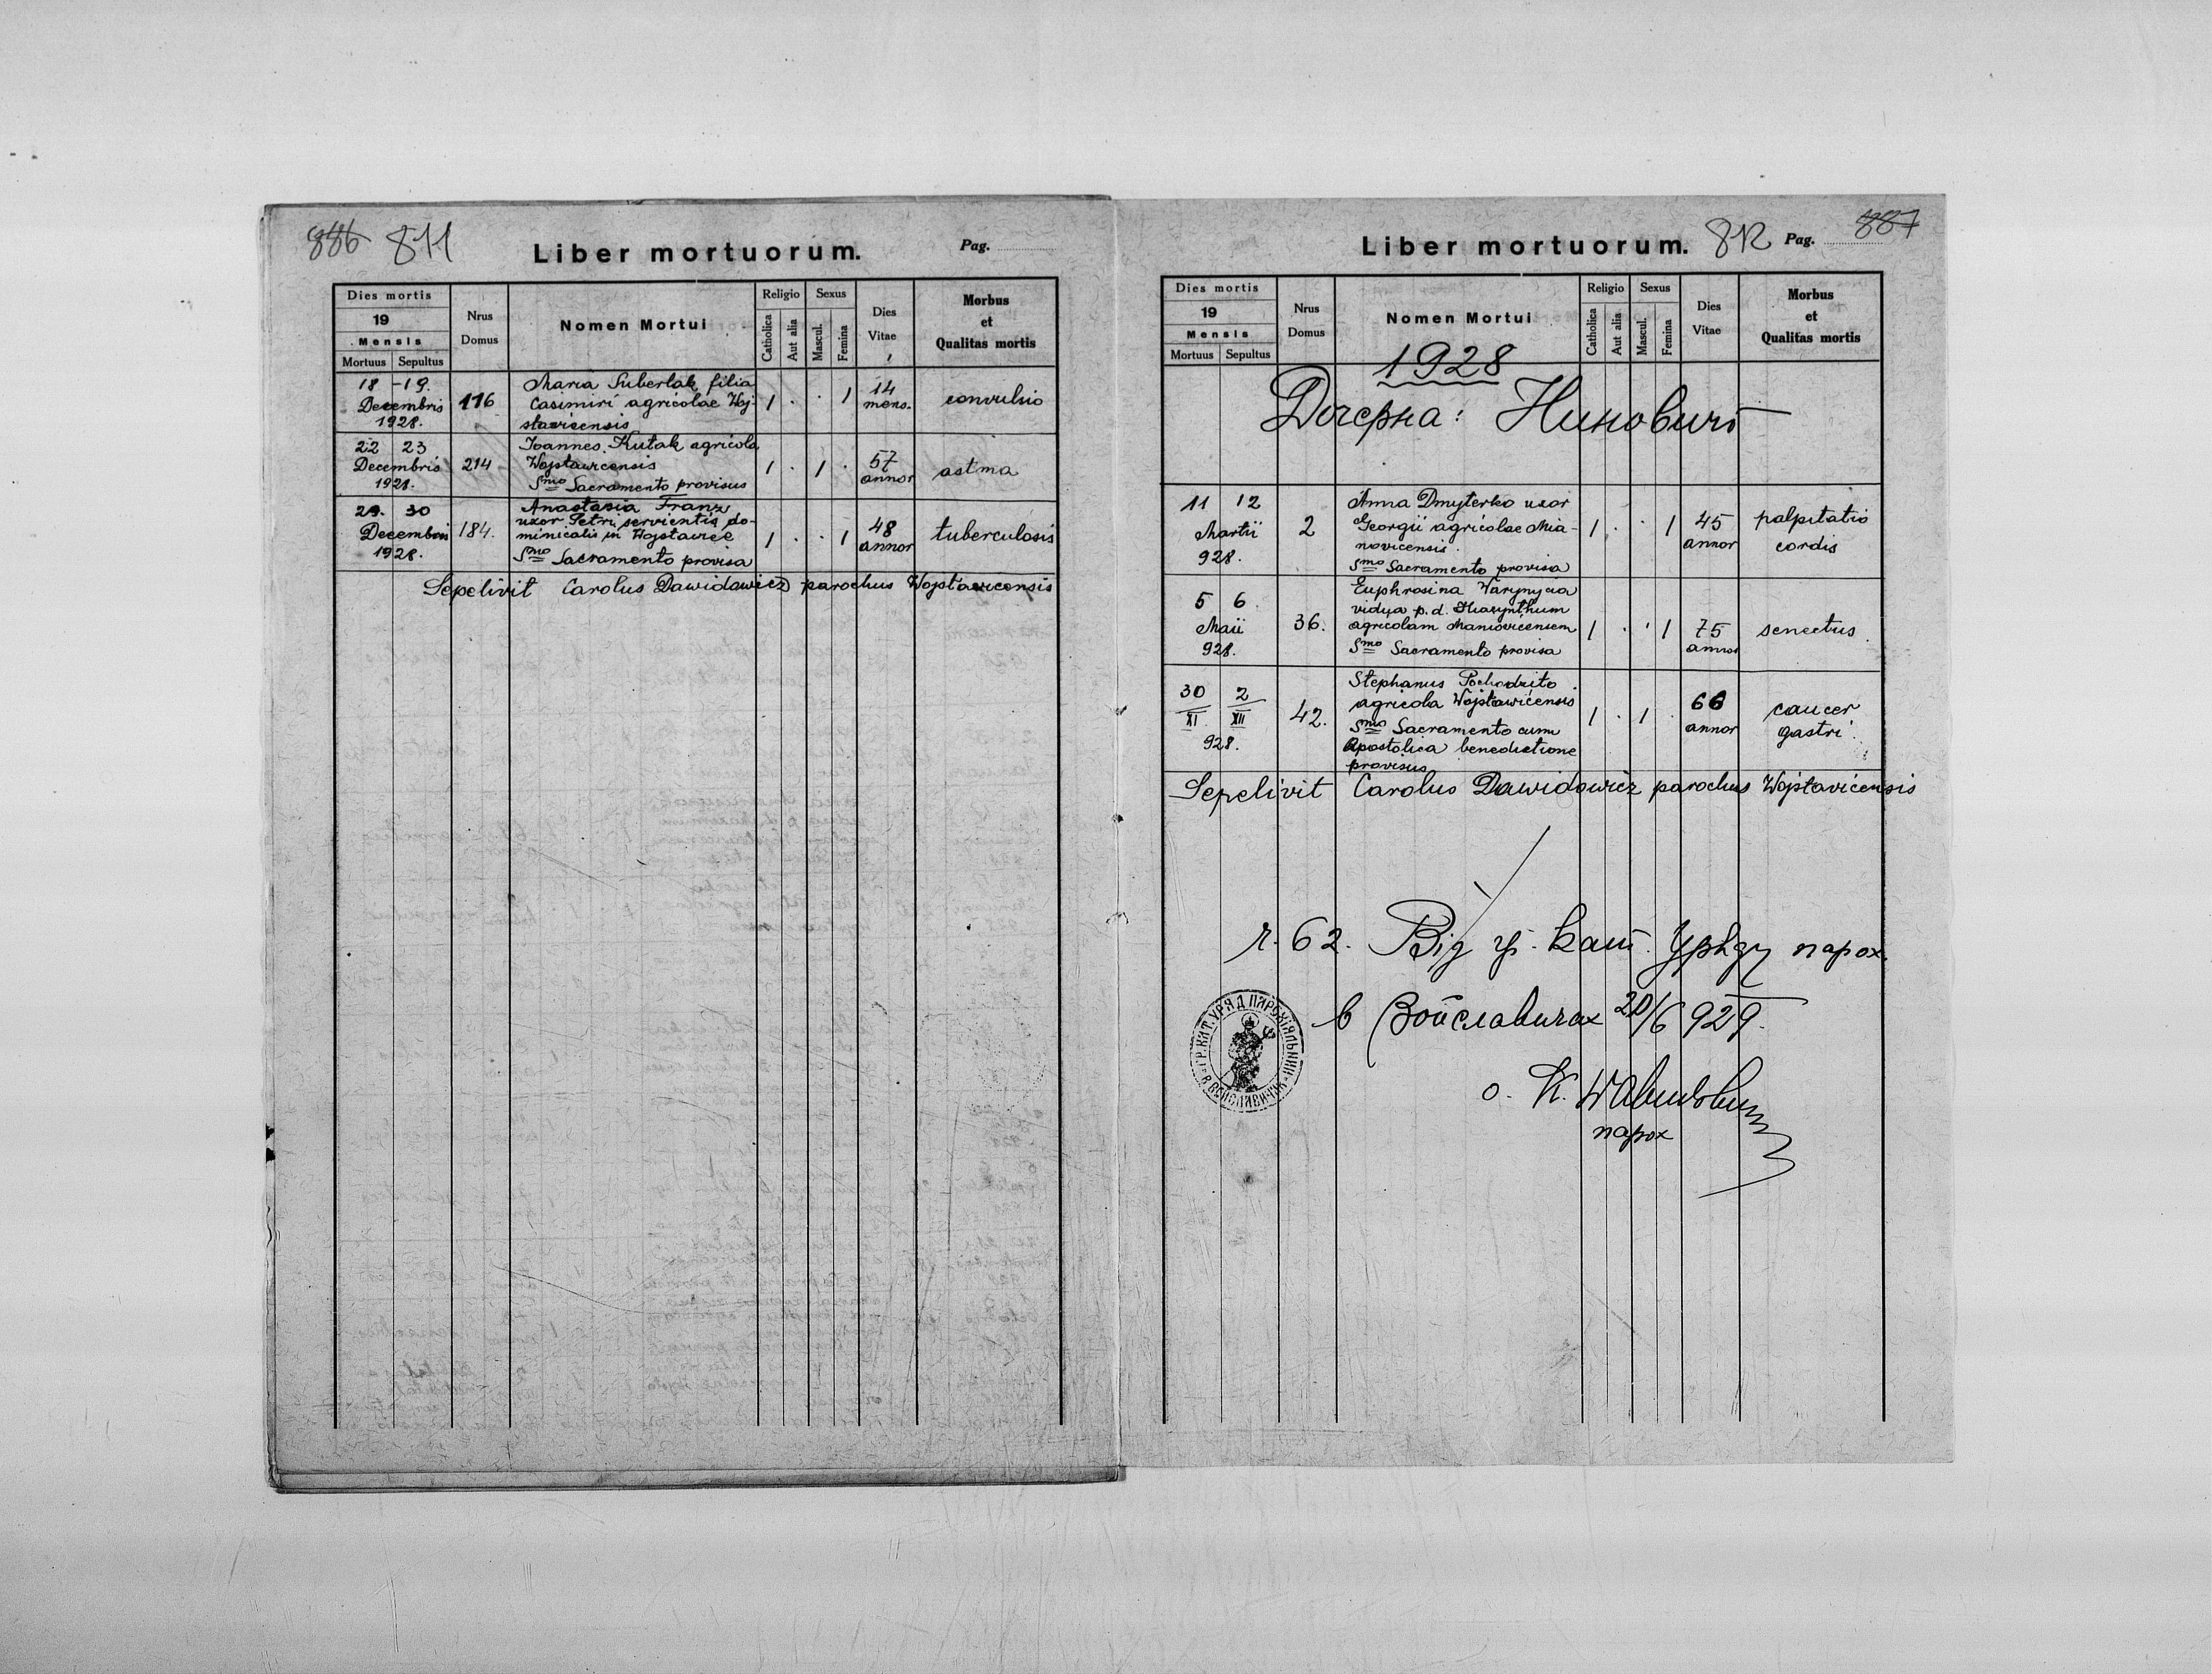 886 811
Liber mortuorum.
Pag.
Dies mortis
19
Mensis
Mortuus Sepultus
Nrus
Domus
Nomen Mortui
Religio
Catholica
Aut alia
Sexus
Mascul.
Femina
Dies
Vitae
Morbus
et
Qualitas mortis
18 - 19.
Decembris
1928.
116
Maria Suberlak filia
Casimiri agricolae Woj-
1 . . 1
14
mens.
convulsio
22 23
Decembris
1928.
214
Joannes Kutak agricola
Wojsławicensis
Smo Sacramento provisus
1 . 1 .
57
annor
astma
29. 30
Decembris
1928.
184.
Anastasia Franz
uxor Petri servientis do-
minicalis in
Smo Sacramento provisa
1 . . 1
48
annor
tuberculosis
Sepelivit Carolus Dawidowicz parochus Wojsławicensis
Liber mortuorum.
812
Pag. 887
Dies mortis
19
Mensis
Mortuus Sepultus
Nrus
Domus
Nomen Mortui
Religio
Catholica
Aut alia
Sexus
Mascul.
Femina
Dies
Vitae
Morbus
et
Qualitas mortis
1928
Дочерна:
11 12
Martii
928.
2
Anna Dmyterko uxor
Georgii agricolae Mia-
novicensis.
Smo Sacramento provisa
1 . . 1
45
annor
palpitatio
cordis
5 6
Maii
928.
36.
Euphrosina
vidua p. d. Hiacynthum
agricolam
Smo Sacramento provisa
1 . . 1
75
annor
senectus
30 2
XI XII
928.
42.
Stephanus
agricola Wojsławicensis
Smo Sacramento cum
Apostolica benedictione
provisus
1 . 1 .
66
annor
cancer
gastri.
Sepelivit Carolus Dawidowicz parochus Wojsławicensis
ч. 62. Від гр. кат. Уряду парох.
в Войславичах 20/6 929.
ГР. КАТ. УРЯД ПАРОХІЯЛЬНИЙ В ВОЙСЛАВИЧАХ
о. К.
парох